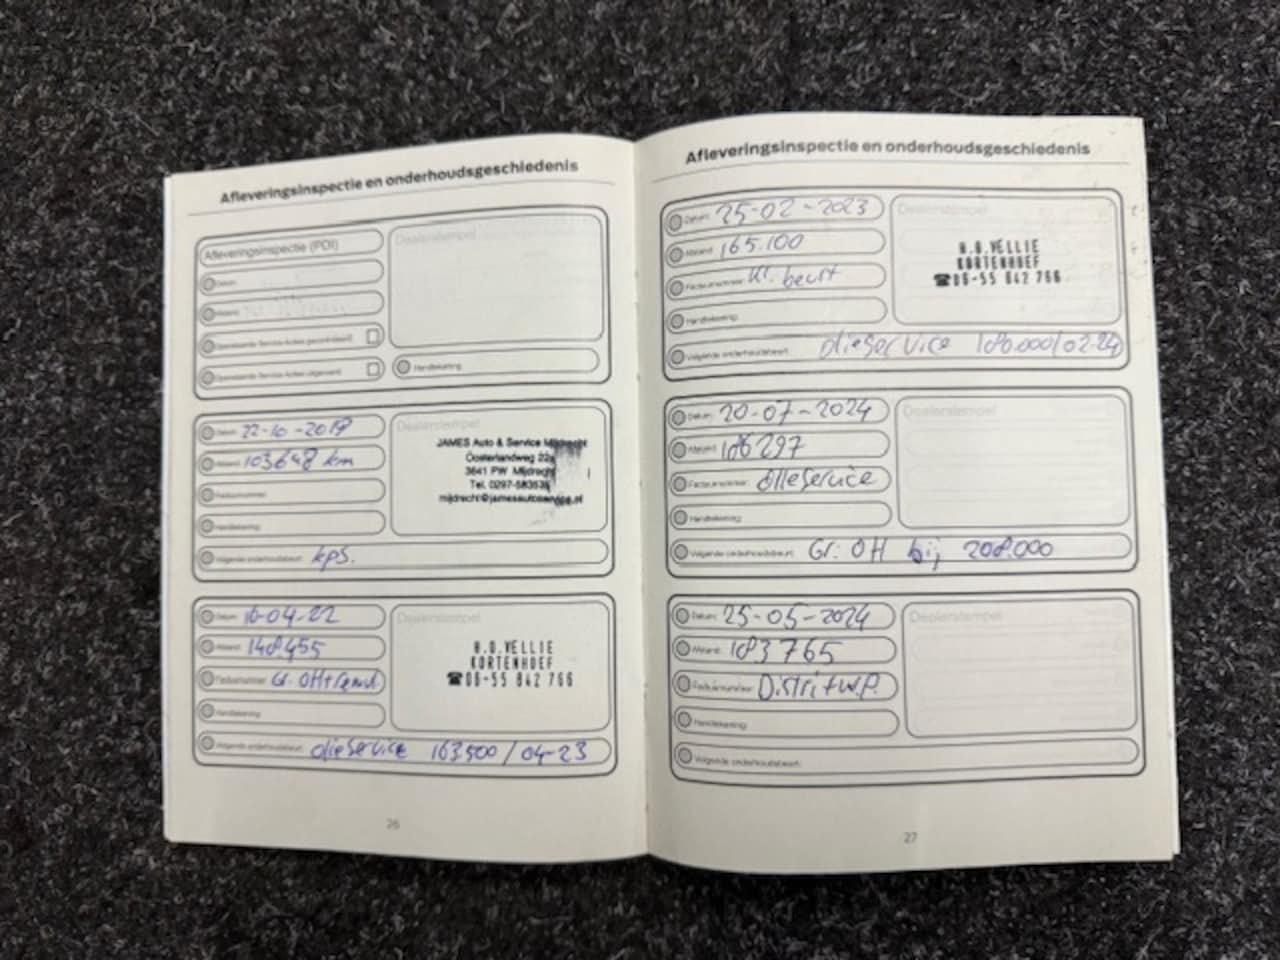 Afleveringsinspectie en onderhoudsgeschiedenis
Afleveringsinspectie (PDI)
Dealerstempel
Datum:
Afstand:
Openstaande Service Acties gecontroleerd:
Openstaande Service Acties uitgevoerd:
Handtekening:
Datum: 22-10-2019
Afstand: 103648 km
Factuurnummer:
Handtekening:
Volgende onderhoudsbeurt: kps.
Dealerstempel
JAMES Auto & Service Mijdrecht
Oosterlandweg 22a
3641 PW Mijdrecht
Tel. 0297-583535
mijdrecht@jamesautoservice.nl
Datum: 16-04-22
Afstand: 148455
Factuurnummer: Gr. OH +
Handtekening:
Volgende onderhoudsbeurt: olieservice 163500 / 04-23
Dealerstempel
H.O.VELLIE
KORTENHOEF
☎06-55 842 766
26
Afleveringsinspectie en onderhoudsgeschiedenis
Datum: 25-02-2023
Afstand: 165.100
Factuurnummer: Kl. beurt
Handtekening:
Volgende onderhoudsbeurt: olieservice 180.000/02-24
Dealerstempel
H.O.VELLIE
KORTENHOEF
☎06-55 842 766
Datum: 20-07-2024
Afstand: 186297
Factuurnummer: olieservice
Handtekening:
Volgende onderhoudsbeurt: Gr. OH bij 208.000
Dealerstempel
Datum: 25-05-2024
Afstand: 183765
Factuurnummer: Distri + w.p.
Handtekening:
Volgende onderhoudsbeurt:
Dealerstempel
27